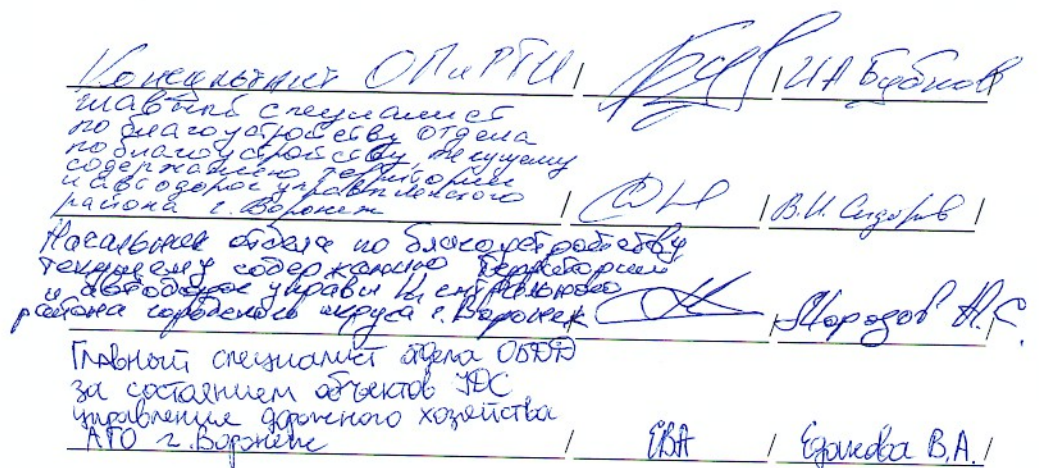 Консультант ОПиРТИ / / И А Бубнов
главный специалист
по благоустройству отдела
по благоустройству, текущему
содержанию территории
и автодорог управ ленского
района г. Воронеж / / В.И. Сидоров /
Начальник отдела по благоустройству
текущему содержанию территории
и автодорог управы Центрального
района городского округа г. Воронеж / Морозов А.С.
Главный специалист отдела ОБДД
за состоянием объектов УДС
управления дорожного хозяйства
АГО г. Воронеж / ЕВА / В.А. /